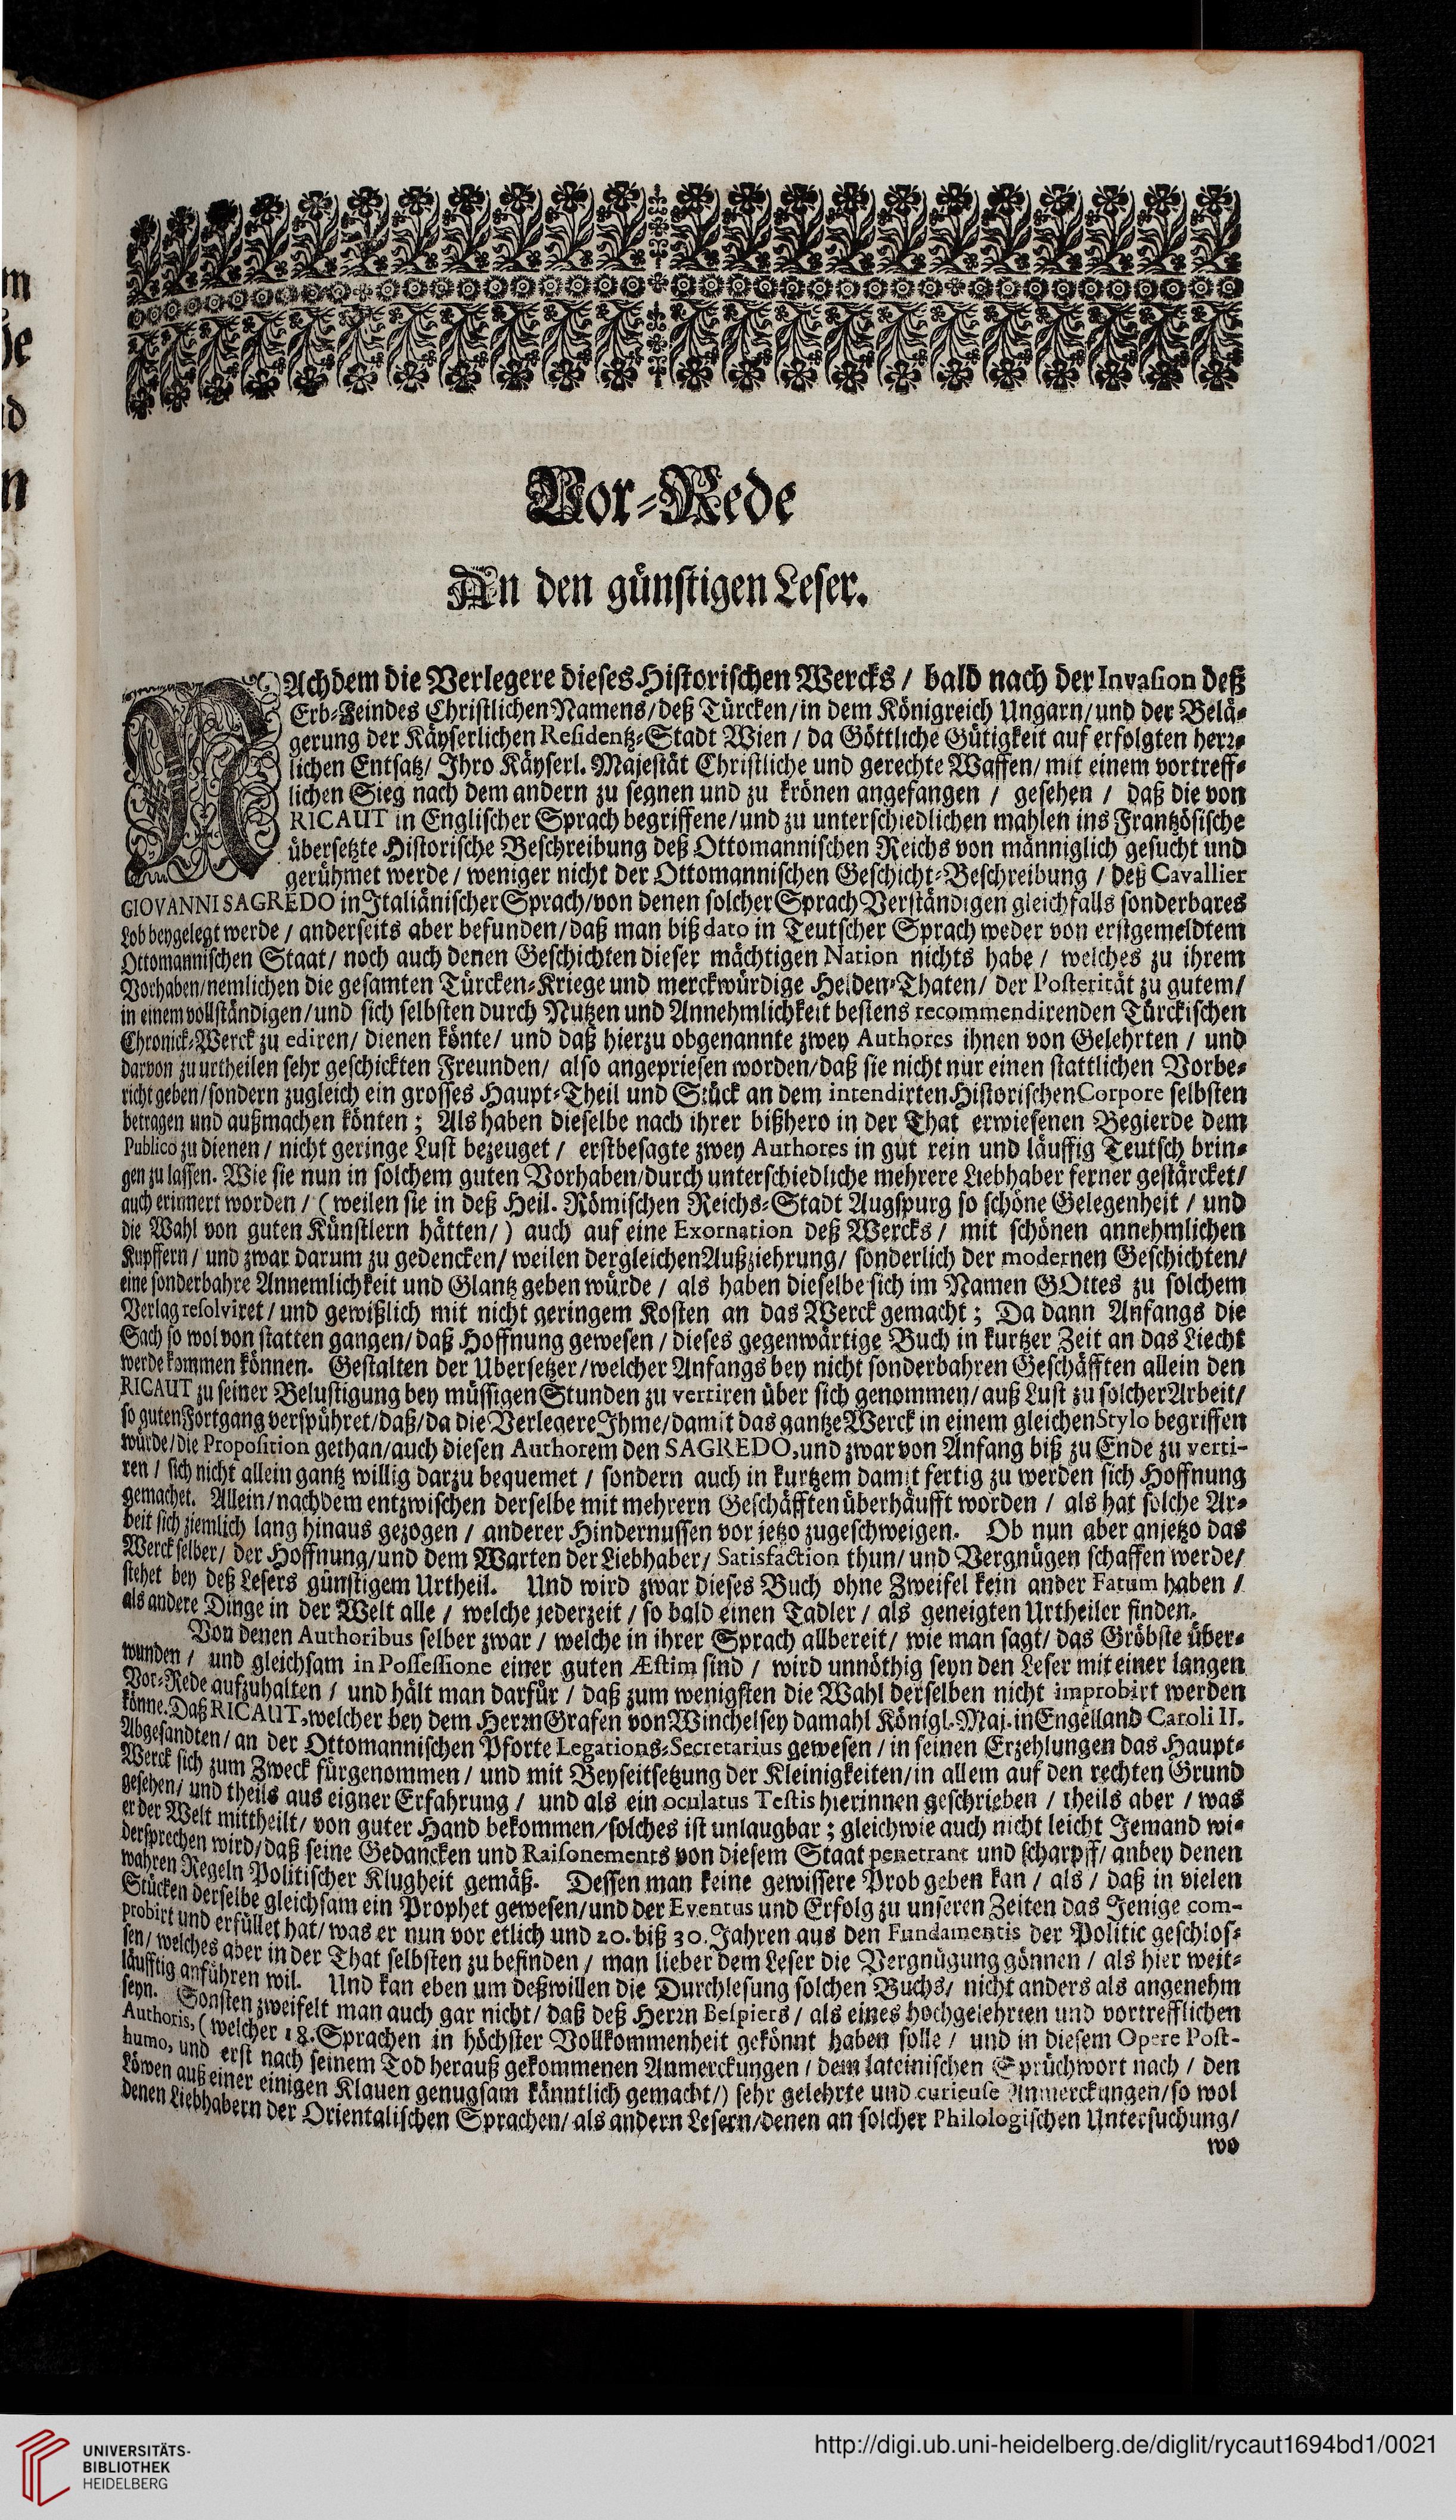 Vor-Rede
An den günstigen Leser.
NAchdem die Verlegere dieses Historischen Wercks / bald nach der Invasion deß
Erb-Feindes Christlichen Namens/deß Türcken/in dem Königreich Ungarn/und der Belä-
gerung der Käyserlichen Residentz-Stadt Wien / da Göttliche Gütigkeit auf erfolgten herr-
lichen Entsatz/ Ihro Käyserl. Majestät Christliche und gerechte Waffen/ mit einem vortreff-
lichen Sieg nach dem andern zu segnen und zu krönen angefangen / gesehen / daß die von
RICAUT in Englischer Sprach begriffene/und zu unterschiedlichen mahlen ins Frantzösische
übersetzte Historische Beschreibung deß Ottomannischen Reichs von männiglich gesucht und
gerühmet werde / weniger nicht der Ottomannischen Geschicht-Beschreibung / deß Cavallier
GIOVANNI SAGREDO in Italiänischer Sprach/von denen solcher Sprach Verständigen gleichfalls sonderbares
Lob beygelegt werde / anderseits aber befunden/daß man biß dato in Teutscher Sprach weder von erstgemeldtem
Ottomannischen Staat/ noch auch denen Geschichten dieser mächtigen Nation nichts habe / welches zu ihrem
Vorhaben/nemlichen die gesamten Türcken-Kriege und merckwürdige Helden-Thaten/ der Posterität zu gutem/
in einem vollständigen/und sich selbsten durch Nutzen und Annehmlichkeit bestens recommendirenden Türckischen
Chronick-Werck zu ediren/ dienen könte/ und daß hierzu obgenannte zwey Authores ihnen von Gelehrten / und
darvon zu urtheilen sehr geschickten Freunden/ also angepriesen worden/daß sie nicht nur einen stattlichen Vorbe-
richt geben/sondern zugleich ein grosses Haupt-Theil und Stück an dem intendirten Historischen Corpore selbsten
betragen und außmachen könten ; Als haben dieselbe nach ihrer bißhero in der That erwiesenen Begierde dem
Publico zu dienen / nicht geringe Lust bezeuget / erstbesagte zwey Authores in gut rein und läuffig Teutsch brin-
gen zu lassen. Wie sie nun in solchem guten Vorhaben/durch unterschiedliche mehrere Liebhaber ferner gestärcket/
auch erinnert worden / ( weilen sie in deß Heil. Römischen Reichs-Stadt Augspurg so schöne Gelegenheit / und
die Wahl von guten Künstlern hätten/) auch auf eine Exornation deß Wercks / mit schönen annehmlichen
Kupffern / und zwar darum zu gedencken/ weilen dergleichen Außziehrung/ sonderlich der modernen Geschichten/
eine sonderbahre Annemlichkeit und Glantz geben würde / als haben dieselbe sich im Namen GOttes zu solchem
Verlag resolviret / und gewißlich mit nicht geringem Kosten an das Werck gemacht ; Da dann Anfangs die
Sach so wol von statten gangen/daß Hoffnung gewesen / dieses gegenwärtige Buch in kurtzer Zeit an das Liecht
werde kommen können. Gestalten der Ubersetzer/welcher Anfangs bey nicht sonderbahren Geschäfften allein den
RICAUT zu seiner Belustigung bey müssigen Stunden zu vertiren über sich genommen/auß Lust zu solcher Arbeit/
so guten Fortgang verspühret/daß/da die Verlegere Ihme/damit das gantze Werck in einem gleichen Stylo begriffen
würde/die Proposition gethan/auch diesen Authorem den SAGREDO, und zwar von Anfang biß zu Ende zu verti-
ren / sich nicht allein gantz willig darzu bequemet / sondern auch in kurtzem damit fertig zu werden sich Hoffnung
gemachet. Allein/nachdem entzwischen derselbe mit mehrern Geschäfften überhäufft worden / als hat solche Ar-
beit sich ziemlich lang hinaus gezogen / anderer Hindernussen vor jetzo zugeschweigen. Ob nun aber anjetzo das
Werck selber/ der Hoffnung/und dem Warten der Liebhaber/ Satisfaction thun/ und Vergnügen schaffen werde/
stehet bey deß Lesers günstigem Urtheil. Und wird zwar dieses Buch ohne Zweifel kein ander Fatum haben /
als andere Dinge in der Welt alle / welche jederzeit / so bald einen Tadler / als geneigten Urtheiler finden.
Von denen Authoribus selber zwar / welche in ihrer Sprach allbereit/ wie man sagt/ das Gröbste über-
wunden / und gleichsam in Possessione einer guten Æstim sind / wird unnöthig seyn den Leser mit einer langen
Vor-Rede aufzuhalten / und hält man darfür / daß zum wenigsten die Wahl derselben nicht improbirt werden
könne. Daß RICAUT, welcher bey dem Herrn Grafen von Winchelsey damahl Königl. Maj. in Engelland Caroli II.
Abgesandten/ an der Ottomannischen Pforte Legations-Secretarius gewesen / in seinen Erzehlungen das Haupt-
Werck sich zum Zweck fürgenommen / und mit Beyseitsetzung der Kleinigkeiten/in allem auf den rechten Grund
gesehen/ und theils aus eigner Erfahrung / und als ein oculatus Testis hierinnen geschrieben / theils aber / was
er der Welt mittheilt/ von guter Hand bekommen/solches ist unlaugbar ; gleichwie auch nicht leicht Jemand wi-
dersprechen wird/daß seine Gedancken und Raisonements von diesem Staat penetrant und scharpff/ anbey denen
wahren Regeln Politischer Klugheit gemäß. Dessen man keine gewissere Prob geben kan / als / daß in vielen
Stücken derselbe gleichsam ein Prophet gewesen/und der Eventus und Erfolg zu unseren Zeiten das Jenige com-
probirt und erfüllet hat/ was er nun vor etlich und 20. biß 30. Jahren aus den Fundamentis der Politic geschlos-
sen/ welches aber in der That selbsten zu befinden / man lieber dem Leser die Vergnügung gönnen / als hier weit-
läufftig anführen wil. Und kan eben um deßwillen die Durchlesung solchen Buchs/ nicht anders als angenehm
seyn. Sonsten zweifelt man auch gar nicht/ daß deß Herrn Bespiers / als eines hochgelehrten und vortrefflichen
Authoris, (welcher 18. Sprachen in höchster Vollkommenheit gekönnt haben solle / und in diesem Opere Post-
humo, und erst nach seinem Tod herauß gekommenen Anmerckungen / dem lateinischen Sprüchwort nach / den
Löwen auß einer einigen Klauen genugsam känntlich gemacht/) sehr gelehrte und curieuse Anmerckungen/so wol
denen Liebhabern der Orientalischen Sprachen/ als andern Lesern/denen an solcher Philologischen Untersuchung/
wo
UNIVERSITÄTS-
BIBLIOTHEK
HEIDELBERG
http://digi.ub.uni-heidelberg.de/diglit/rycaut1694bd1/0021